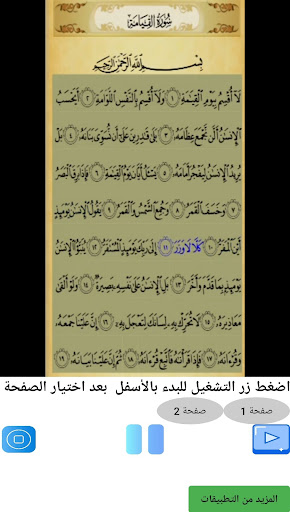 سُورَةُ الْقِيَامَةِ
بِسْمِ اللَّهِ الرَّحْمَٰنِ الرَّحِيمِ
لَآ أُقۡسِمُ بِيَوۡمِ ٱلۡقِيَٰمَةِ ١ وَلَآ أُقۡسِمُ بِٱلنَّفۡسِ ٱللَّوَّامَةِ ٢ أَيَحۡسَبُ
ٱلۡإِنسَٰنُ أَلَّن نَّجۡمَعَ عِظَامَهُۥ ٣ بَلَىٰ قَٰدِرِينَ عَلَىٰٓ أَن نُّسَوِّيَ بَنَانَهُۥ ٤ بَلۡ
يُرِيدُ ٱلۡإِنسَٰنُ لِيَفۡجُرَ أَمَامَهُۥ ٥ يَسۡـَٔلُ أَيَّانَ يَوۡمُ ٱلۡقِيَٰمَةِ ٦ فَإِذَا بَرِقَ ٱلۡبَصَرُ
٧ وَخَسَفَ ٱلۡقَمَرُ ٨ وَجُمِعَ ٱلشَّمۡسُ وَٱلۡقَمَرُ ٩ يَقُولُ ٱلۡإِنسَٰنُ يَوۡمَئِذٍ
أَيۡنَ ٱلۡمَفَرُّ ١٠ كَلَّا لَا وَزَرَ ١١ إِلَىٰ رَبِّكَ يَوۡمَئِذٍ ٱلۡمُسۡتَقَرُّ ١٢ يُنَبَّؤُاْ ٱلۡإِنسَٰنُ
يَوۡمَئِذِۭ بِمَا قَدَّمَ وَأَخَّرَ ١٣ بَلِ ٱلۡإِنسَٰنُ عَلَىٰ نَفۡسِهِۦ بَصِيرَةٞ ١٤ وَلَوۡ أَلۡقَىٰ
مَعَاذِيرَهُۥ ١٥ لَا تُحَرِّكۡ بِهِۦ لِسَانَكَ لِتَعۡجَلَ بِهِۦٓ ١٦ إِنَّ عَلَيۡنَا جَمۡعَهُۥ
وَقُرۡءَانَهُۥ ١٧ فَإِذَا قَرَأۡنَٰهُ فَٱتَّبِعۡ قُرۡءَانَهُۥ ١٨ ثُمَّ إِنَّ عَلَيۡنَا بَيَانَهُۥ ١٩
اضغط زر التشغيل للبدء بالأسفل بعد اختيار الصفحة
صفحة 1
صفحة 2
المزيد من التطبيقات